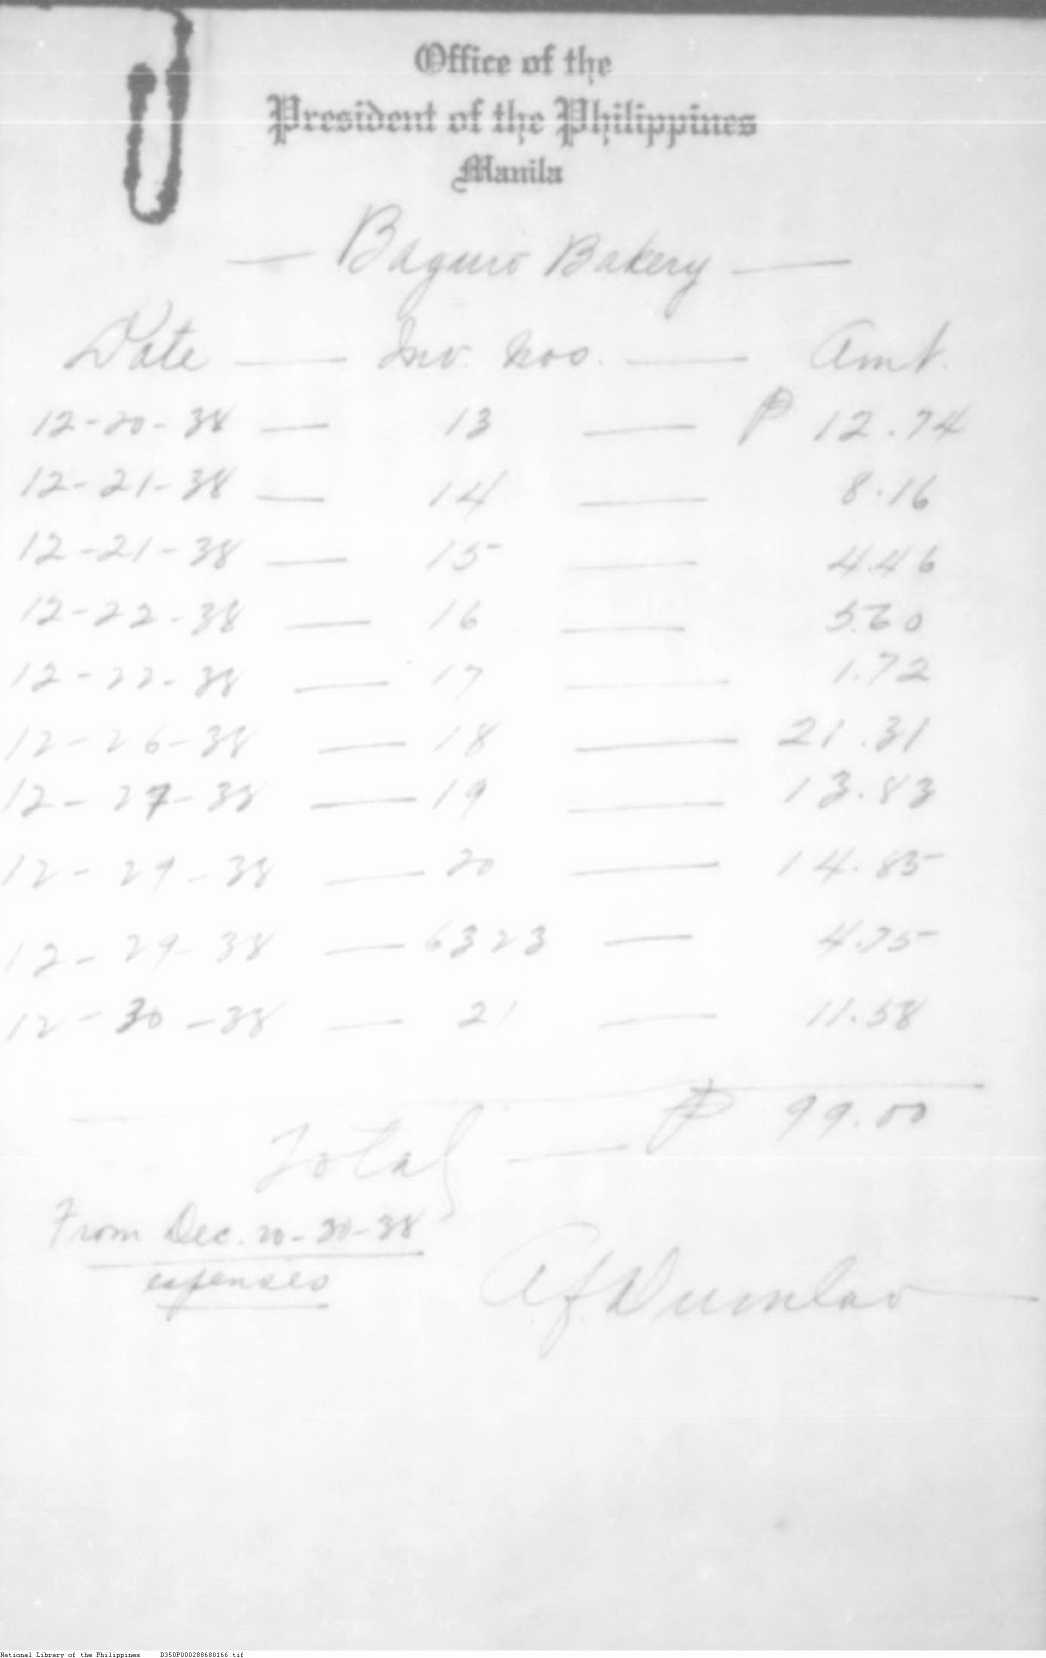 Office of the
President of the Philippines
Manila
— Baguio Bakery —
Date — Inv. Nos. — Amt.
12-20-38 — 13 — ₱ 12.74
12-21-38 — 14 — 8.16
12-21-38 — 15 — 4.46
12-22-38 — 16 — 5.60
12-22-38 — 17 — 1.72
12-26-38 — 18 — 21.31
12-27-38 — 19 — 13.83
12-29-38 — 20 — 14.85
12-29-38 — 6323 — 4.75
12-30-38 — 21 — 11.58
Total — ₱ 99.00
From Dec. 20-30-38
expenses
A.J. Dumlao
National Library of the Philippines D350P000288680166.tif